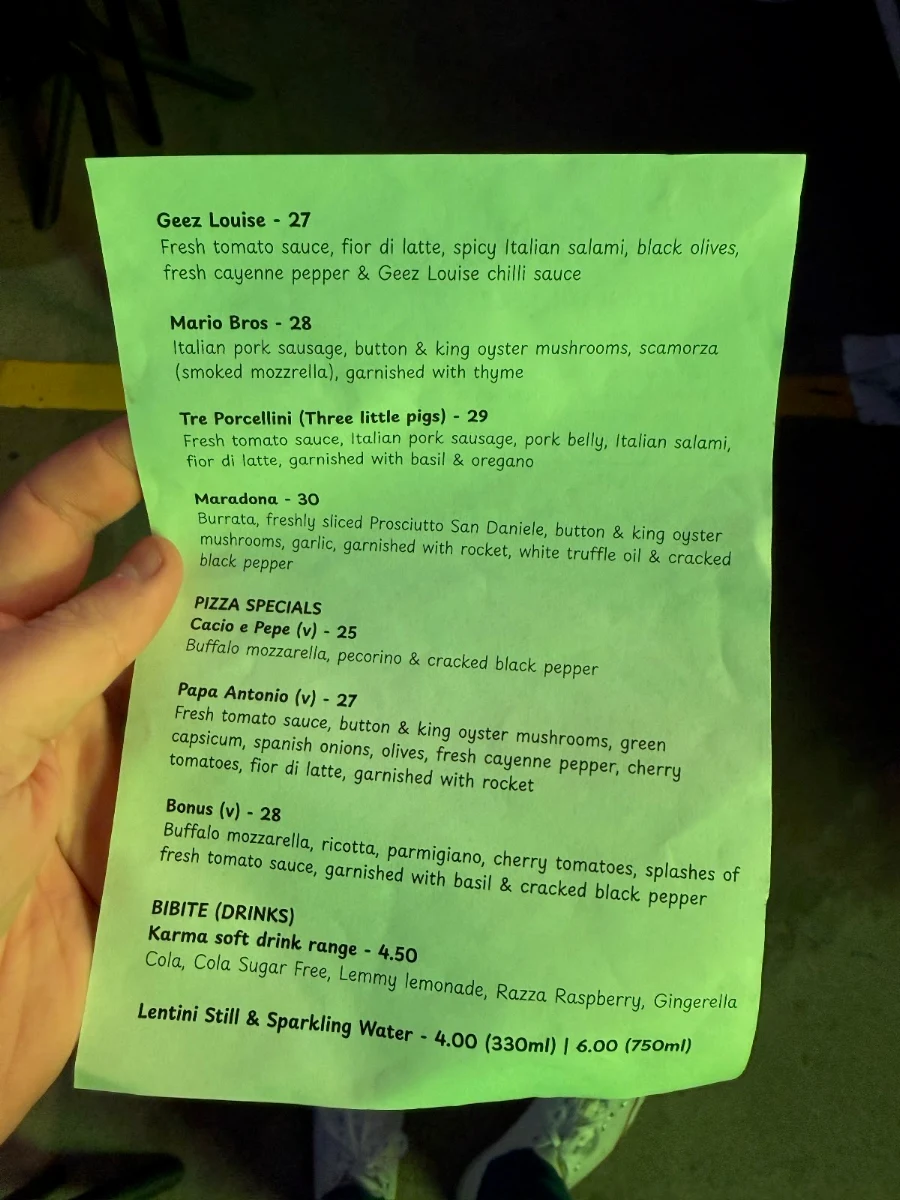 Geez Louise - 27
Fresh tomato sauce, fior di latte, spicy Italian salami, black olives,
fresh cayenne pepper & Geez Louise chilli sauce
Mario Bros - 28
Italian pork sausage, button & king oyster mushrooms, scamorza
(smoked mozzrella), garnished with thyme
Tre Porcellini (Three little pigs) - 29
Fresh tomato sauce, Italian pork sausage, pork belly, Italian salami,
fior di latte, garnished with basil & oregano
Maradona - 30
Burrata, freshly sliced Prosciutto San Daniele, button & king oyster
mushrooms, garlic, garnished with rocket, white truffle oil & cracked
black pepper
PIZZA SPECIALS
Cacio e Pepe (v) - 25
Buffalo mozzarella, pecorino & cracked black pepper
Papa Antonio (v) - 27
Fresh tomato sauce, button & king oyster mushrooms, green
capsicum, spanish onions, olives, fresh cayenne pepper, cherry
tomatoes, fior di latte, garnished with rocket
Bonus (v) - 28
Buffalo mozzarella, ricotta, parmigiano, cherry tomatoes, splashes of
fresh tomato sauce, garnished with basil & cracked black pepper
BIBITE (DRINKS)
Karma soft drink range - 4.50
Cola, Cola Sugar Free, Lemmy lemonade, Razza Raspberry, Gingerella
Lentini Still & Sparkling Water - 4.00 (330ml) | 6.00 (750ml)